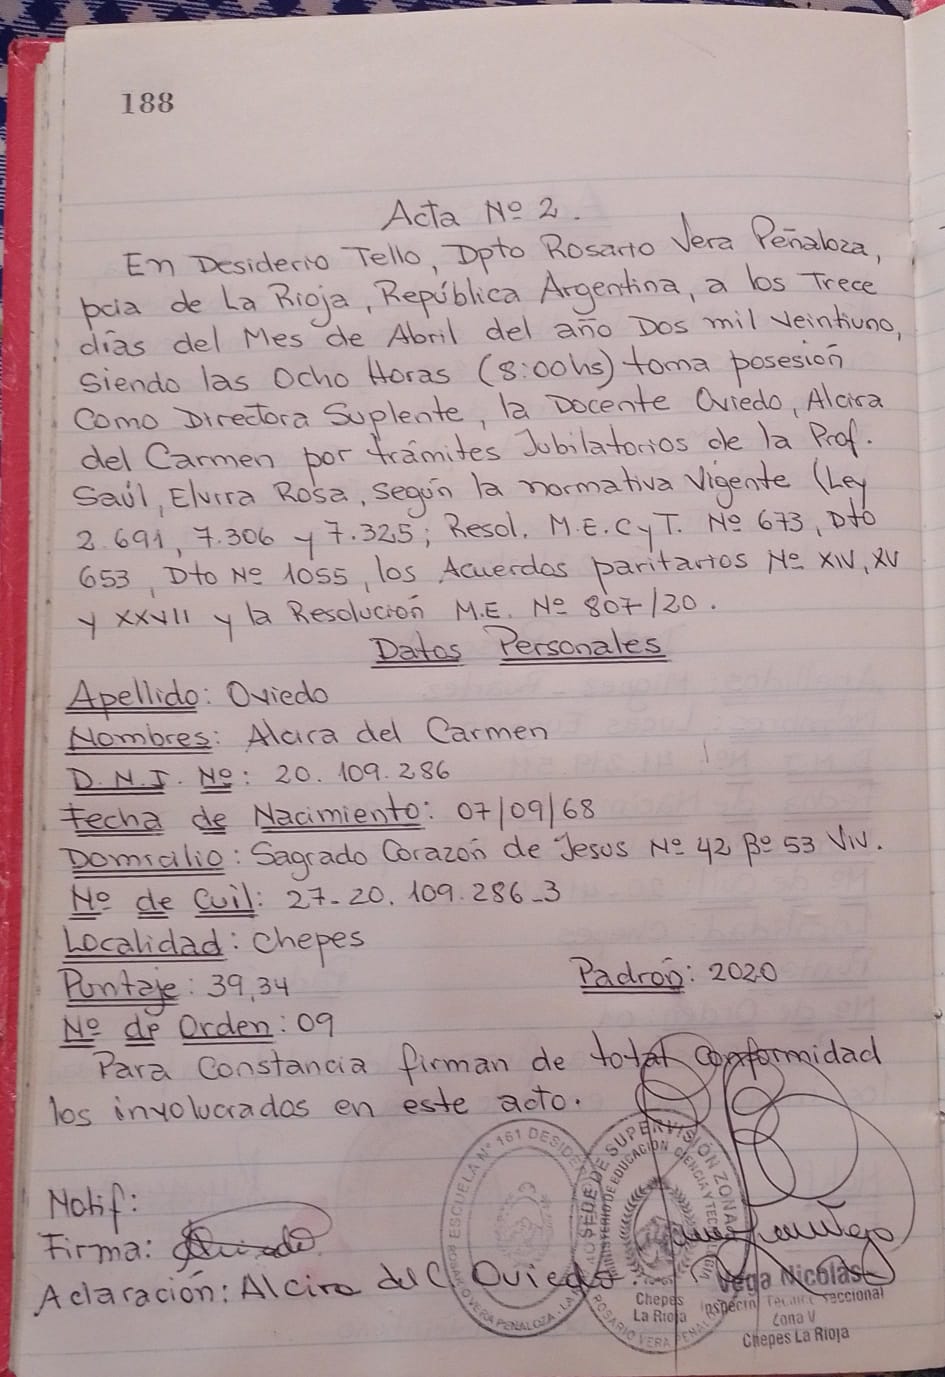 188
Acta Nº 2.
En Desiderio Tello, Dpto Rosario Vera Peñaloza,
pcia de La Rioja, República Argentina, a los Trece
días del Mes de Abril del año Dos mil veintiuno,
siendo las Ocho Horas (8:00hs) toma posesión
Como Directora Suplente, la Docente Oviedo, Alcira
del Carmen por trámites Jubilatorios de la Prof.
Saúl, Elvira Rosa, según la normativa Vigente (Ley
2.691, 7.306 y 7.325; Resol. M.E.C y T. Nº 673, Dto
653, Dto Nº 1055, los Acuerdos paritarios Nº XIV, XV
y XXVII y la Resolución M.E. Nº 807/20.
Datos Personales
Apellido: Oviedo
Nombres: Alcira del Carmen
D.N.I. Nº: 20.109.286
Fecha de Nacimiento: 07/09/68
Domicilio: Sagrado Corazón de Jesus Nº 42 Bº 53 Viv.
Nº de Cuil: 27-20.109.286-3
Localidad: Chepes
Puntaje: 39,34 Padrón: 2020
Nº de Orden: 09
Para Constancia firman de total Conformidad
los involucrados en este acto.
Notif:
Firma:
Aclaración: Alcira del C. Oviedo
ESCUELA Nº 161 DESIDE
SEDE DE SUPERVISIÓN ZONA
MINISTERIO DE EDUCACIÓN CIENCIA Y TEC
Chepes
La Rioja
ROSARIO VERA PEÑAL
Vega Nicolás
Zona V
Chepes La Rioja